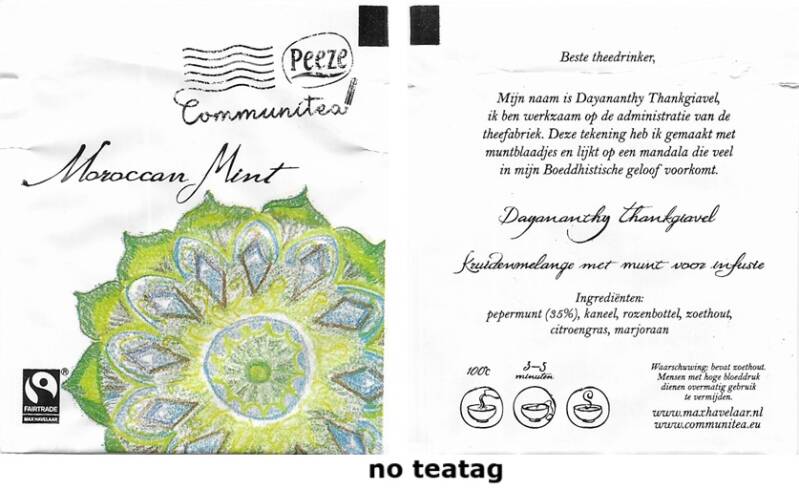 Peeze
Communitea
Moroccan Mint
FAIRTRADE
MAX HAVELAAR
®
Beste theedrinker,
Mijn naam is Dayananthy Thankgiavel,
ik ben werkzaam op de administratie van de
theefabriek. Deze tekening heb ik gemaakt met
muntblaadjes en lijkt op een mandala die veel
in mijn Boeddhistische geloof voorkomt.
Dayananthy Thankgiavel
Kruidenmelange met munt voor infusie
Ingrediënten:
pepermunt (35%), kaneel, rozenbottel, zoethout,
citroengras, marjoraan
100°c
3-5
minuten
Waarschuwing: bevat zoethout.
Mensen met hoge bloeddruk
dienen overmatig gebruik
te vermijden.
www.maxhavelaar.nl
www.communitea.eu
no teatag